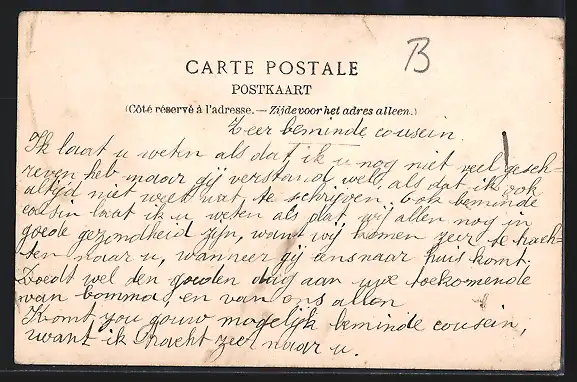 B
CARTE POSTALE
POSTKAART
(Côté réservé à l'adresse. — Zijde voor het adres alleen.)
Zeer beminde cousein
Ik laat u weten als dat ik u nog niet veel gesch-
reven heb maar gij verstand wel, als dat ik ook
altijd niet weet wat te schrijven. Ook beminde
cousin laat ik u weten als dat wij allen nog in
goede gezondheid zijn, want wij komen zeer te trach-
ten naar u, wanneer gij eens naar huis komt.
Doedt wel den goeden dag aan uwe toekomende
van bomma, en van ons allen
Komt you gouw mogelijk beminde cousein,
want ik tracht zeer naar u.